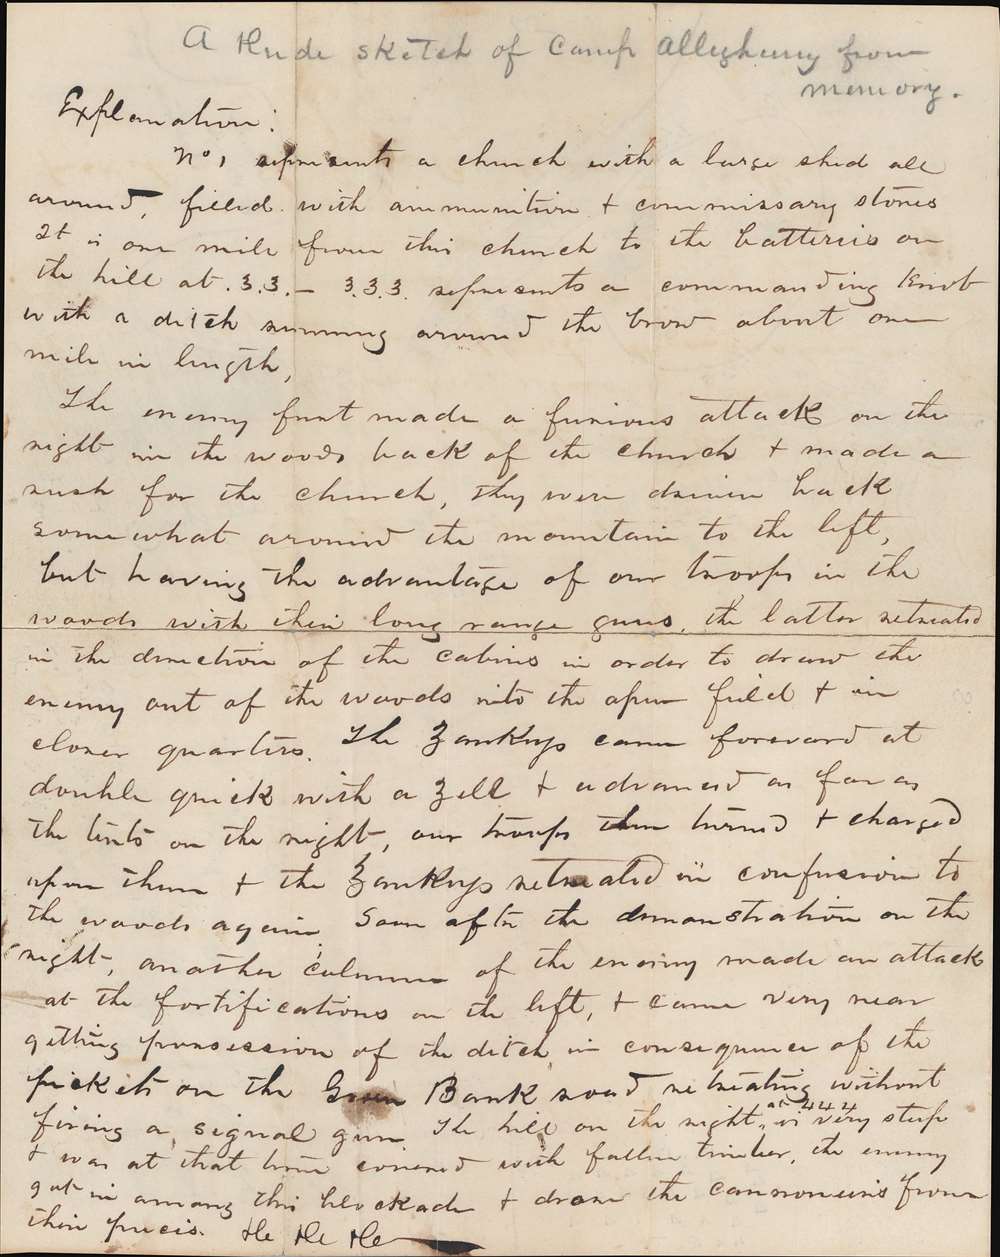 A Rude sketch of Camp Alleghany from
memory.
Explanation:
No 1 represents a church with a large shed all
around, filled with ammunition & commissary stores
It is one mile from this church to the batteries on
the hill at .3.3. — 3.3.3. represents a commanding Knob
with a ditch running around the brow about one
mile in length,
The enemy first made a furious attack on the
right in the woods back of the church & made a
rush for the church, they were driven back
somewhat around the mountain to the left,
but having the advantage of our troops in the
woods with their long range guns, the latter retreated
in the direction of the cabins in order to draw the
enemy out of the woods into the open field & in
closer quarters. The Yankeys came foreward at
double quick with a Yell & advanced as far as
the tents on the right, our troops then turned & charged
upon them & the Yankeys retreated in confusion to
the woods again Soon after the demonstration on the
right, another column of the enemy made an attack
at the fortifications on the left, & came very near
getting possession of the ditch in consequence of the
pickets on the Green Bank road retreating without
firing a signal gun The hill on the right at 444 is very steep
& was at that time covered with fallen timber, the enemy
got in among this blockade & drove the cannoneers from
their pieces. He He He